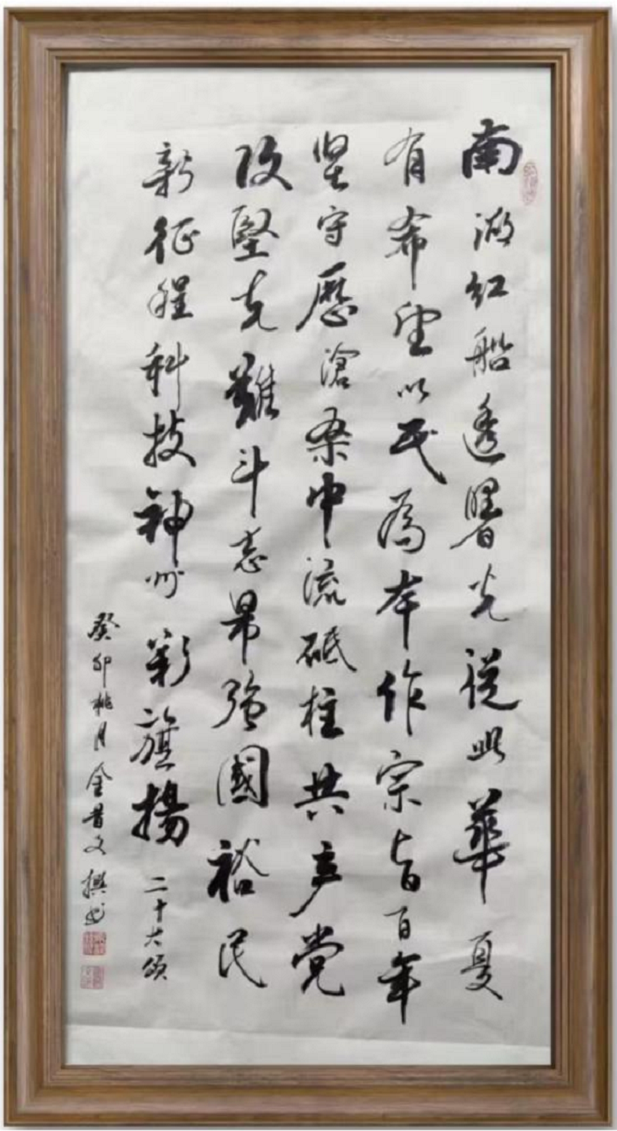 南湖红船透曙光从此华夏
有希望以民為本作宗旨百年
坚守歷滄桑中流砥柱共产党
攻堅克難斗志昂强國裕民
新征程科技神州彩旗揚
二十大颂
癸卯桃月金昔文撰书